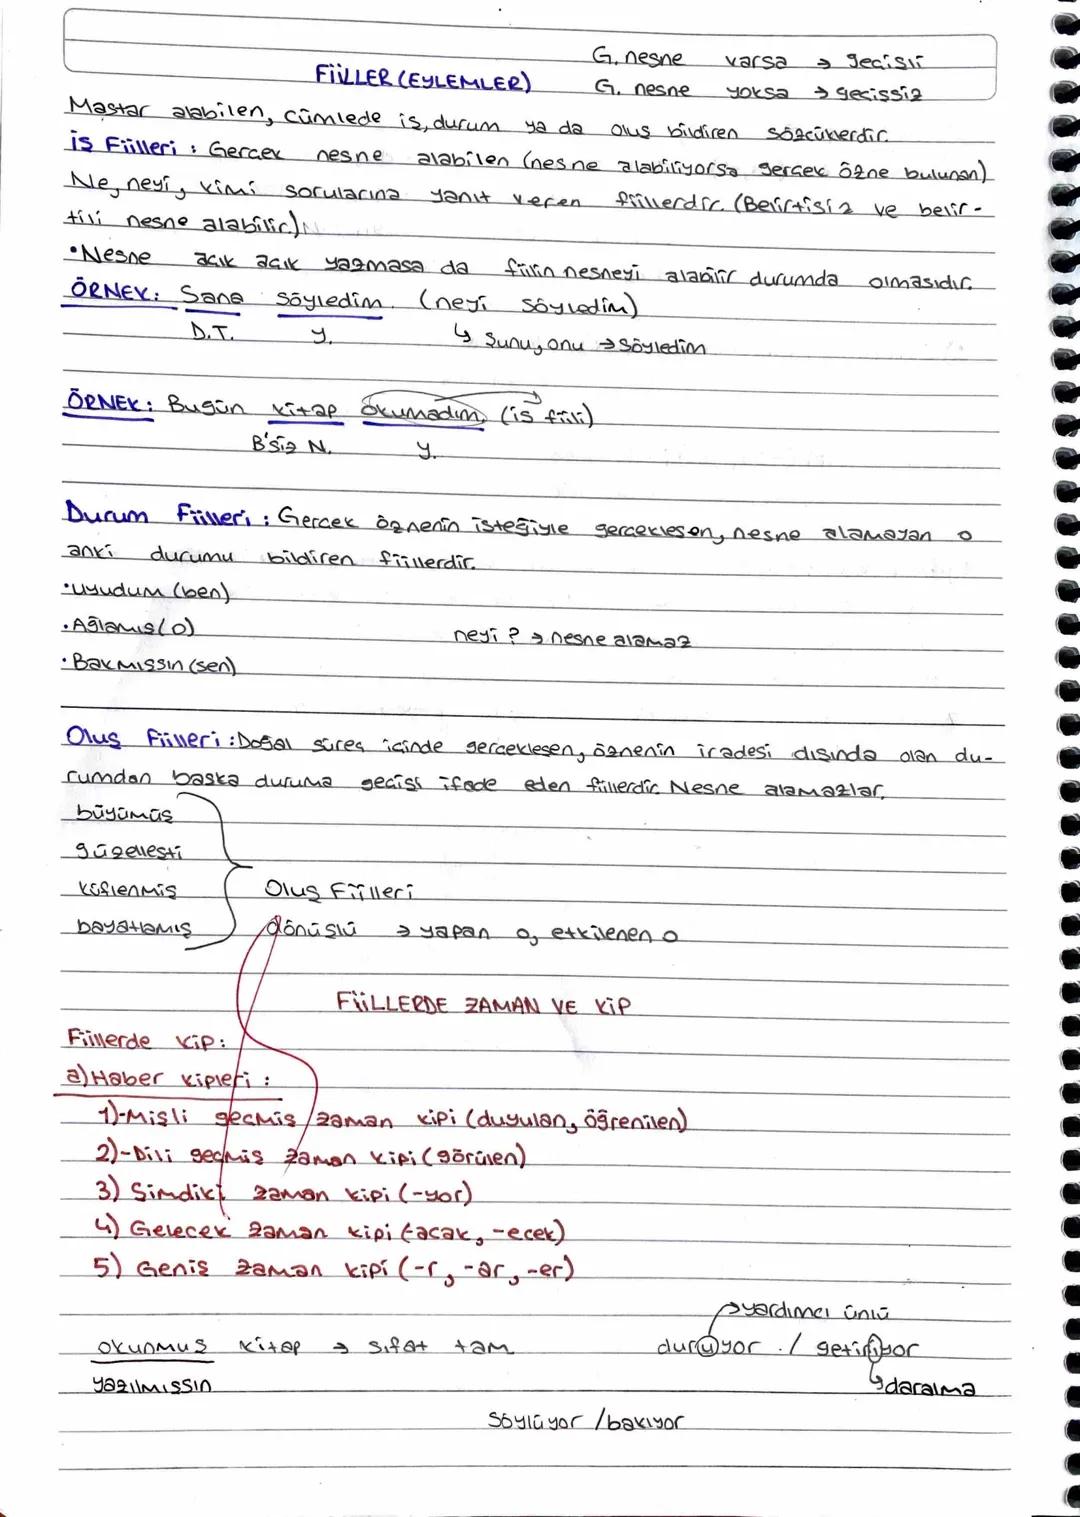 G. nesne varsa → geçişli
FİİLLER (EYLEMLER)
G. nesne yoksa → geçissiz
Mastar alabilen, cümlede iş, durum ya da oluş bildiren sözcüklerdir.
İş Fiilleri : Gerçek nesne alabilen (nesne alabiliyorsa gerçek özne bulunan)
Ne, neyi, kimi sorularına yanıt veren fiillerdir. (Belirtisiz ve belir-
tili nesne alabilir.)
• Nesne açık açık yazmasa da fiilin nesneyi alabilir durumda olmasıdır.
ÖRNEK: Sana söyledim. (neyi söyledim)
D.T. y. ↳ Şunu, onu → söyledim
ÖRNEK: Bugün kitap okumadım. (iş fiili)
B'siz N. y.
Durum Fiilleri : Gerçek öznenin isteğiyle gerçekleşen, nesne alamayan o
anki durumu bildiren fiillerdir.
• uyudum (ben)
• Ağlamış (o)
neyi ? → nesne alamaz
• Bakmışsın (sen)
Oluş Fiilleri : Doğal süreç içinde gerçekleşen, öznenin iradesi dışında olan du-
rumdan başka duruma geçişi ifade eden fiillerdir. Nesne alamazlar.
büyümüş
güzelleşti
küflenmiş Oluş Fiilleri
bayatlamış dönüşlü → yapan o, etkilenen o
FİİLLERDE ZAMAN VE KİP
Fiillerde kip:
a) Haber kipleri :
1)-Mişli geçmiş zaman kipi (duyulan, öğrenilen)
2)-Dili geçmiş zaman kipi (görülen)
3) Şimdiki zaman kipi (-yor)
4) Gelecek zaman kipi (-acak, -ecek)
5) Geniş zaman kipi (-r, -ar, -er)
→ yardımcı ünlü
okunmuş kitap → sıfat tam duruyor . / getiriyor
yazılmışsın ↳ daralma
söylüyor / bakıyor